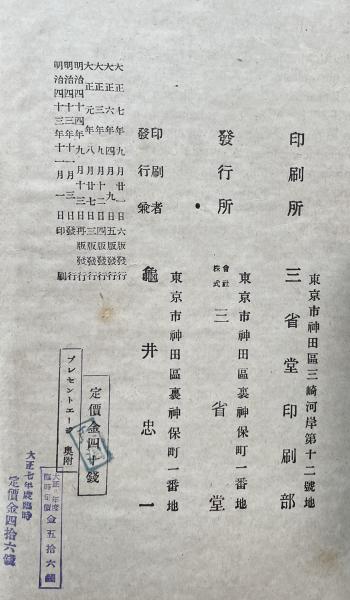 東京市神田區三崎河岸第十二號地
印刷所　三省堂印刷部
東京市神田區裏神保町一番地
發行所　株式會社　三省堂
東京市神田區裏神保町一番地
發行兼印刷者　龜井忠一
大正七年九月廿一日六版發行
大正六年四月九日五版發行
大正元年八月廿七日三版發行
明治四十四年九月十三日再版發行
明治四十三年十一月三日發行
明治四十三年十一月一日印刷
定價金四十錢
プレゼント 奥附
大正 年度
臨時定價 金五拾六錢
大正七年度臨時
定價金四拾六錢